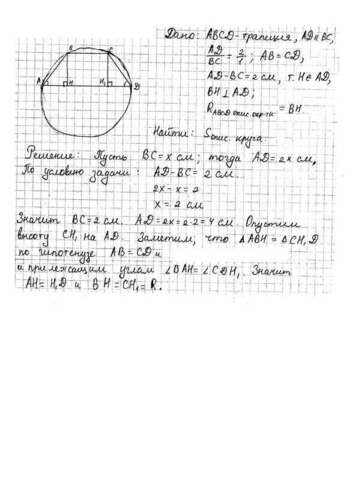 Дано: ABCD - трапеция, AD ∥ BC,
AD/BC = 2/1; AB = CD,
AD - BC = 2 см, т. H ∈ AD,
BH ⊥ AD;
R ABCD опис. окр-ти = BH.
B
C
A
H
H₁
D
Найти: S опис. круга.
Решение: Пусть BC = x см; тогда AD = 2x см,
По условию задачи: AD - BC = 2 см.
2x - x = 2
x = 2 см
Значит BC = 2 см. AD = 2x = 2·2 = 4 см. Опустим
высоту CH₁ на AD. Заметим, что △ABH = △CH₁D
по гипотенузе AB = CD и
и прилежащим углам ∠BAH = ∠CDH₁. Значит
AH = H₁D и BH = CH₁ = R.